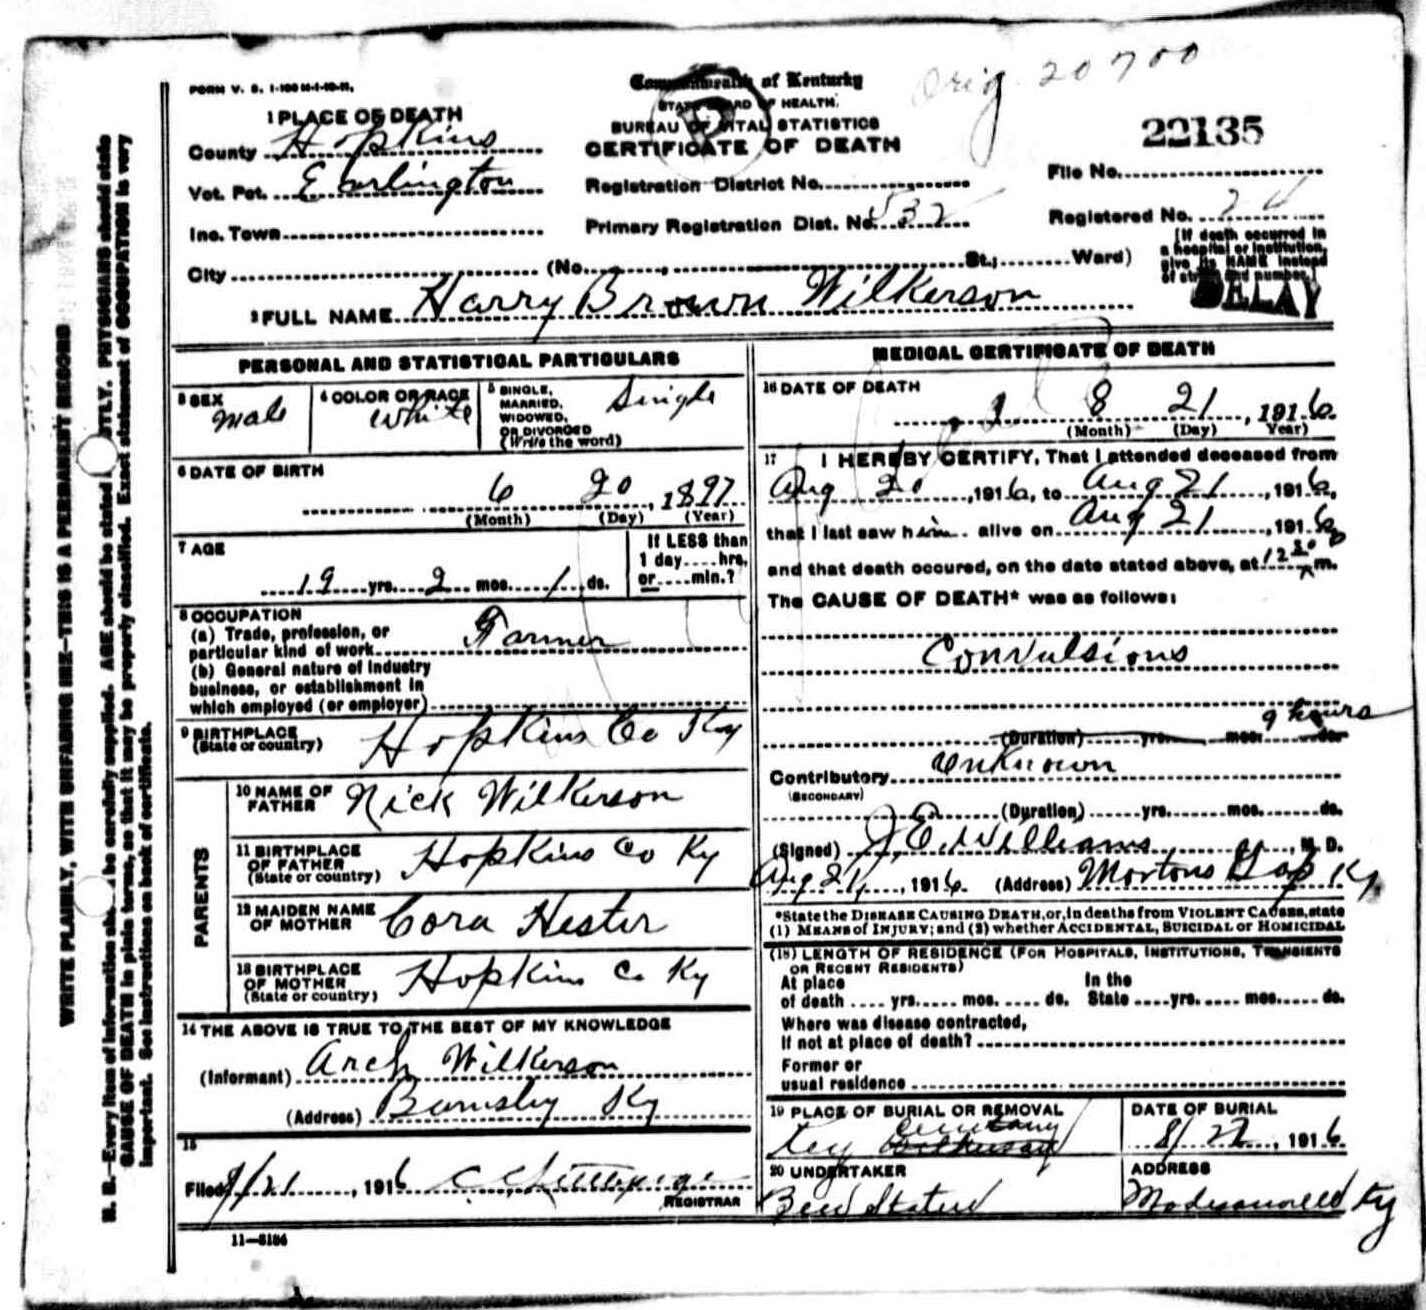 FORM V. S. 1-100 M-1-10-11.
Orig. 20700
Commonwealth of Kentucky
STATE BOARD OF HEALTH.
BUREAU OF VITAL STATISTICS
CERTIFICATE OF DEATH
22135
1 PLACE OF DEATH
County Hopkins
Vot. Pct. Earlington
Inc. Town
City (No. , St.; Ward)
Registration District No.
Primary Registration Dist. No. 532
File No.
Registered No.
[If death occurred in
a hospital or institution,
give its NAME instead
of street and number.]
DELAY
2 FULL NAME Harry Brown Wilkerson
PERSONAL AND STATISTICAL PARTICULARS
3 SEX
male
4 COLOR OR RACE
White
5 SINGLE,
MARRIED,
WIDOWED,
OR DIVORCED
(Write the word)
Single
6 DATE OF BIRTH
6 20, 1897
(Month) (Day) (Year)
7 AGE
19 yrs. 2 mos. 1 ds.
If LESS than
1 day....hrs.
or....min.?
8 OCCUPATION
(a) Trade, profession, or
particular kind of work Farmer
(b) General nature of industry
business, or establishment in
which employed (or employer)
9 BIRTHPLACE
(State or country) Hopkins Co Ky
PARENTS
10 NAME OF
FATHER Nick Wilkerson
11 BIRTHPLACE
OF FATHER
(State or country) Hopkins Co Ky
12 MAIDEN NAME
OF MOTHER Cora Hester
13 BIRTHPLACE
OF MOTHER
(State or country) Hopkins Co Ky
14 THE ABOVE IS TRUE TO THE BEST OF MY KNOWLEDGE
(Informant) Arch Wilkerson
(Address) Barnsley Ky
15
Filed 8/21, 1916
REGISTRAR
11-3184
MEDICAL CERTIFICATE OF DEATH
16 DATE OF DEATH
8 21, 1916
(Month) (Day) Year)
17 I HEREBY CERTIFY, That I attended deceased from
Aug 20, 1916, to Aug 21, 1916,
that I last saw him alive on Aug 21, 1916
and that death occured, on the date stated above, at 12 30 m.
The CAUSE OF DEATH* was as follows:
Convulsions
(Duration) yrs. mos. 9 hours ds.
Contributory Unknown
(SECONDARY)
(Duration) yrs. mos. ds.
(Signed) J. E. Williams, M. D.
Aug 21, 1916. (Address) Mortons Gap Ky.
*State the DISEASE CAUSING DEATH, or, in deaths from VIOLENT CAUSES, state
(1) MEANS of INJURY; and (2) whether ACCIDENTAL, SUICIDAL or HOMICIDAL
(18) LENGTH OF RESIDENCE (FOR HOSPITALS, INSTITUTIONS, TRANSIENTS
OR RECENT RESIDENTS)
At place In the
of death .... yrs. .... mos. .... ds. State .... yrs. .... mos. .... ds.
Where was disease contracted,
If not at place of death?
Former or
usual residence
19 PLACE OF BURIAL OR REMOVAL
Cemetary
Key Wilkerson
DATE OF BURIAL
8/22, 1916
20 UNDERTAKER
ADDRESS
Madisonville Ky
WRITE PLAINLY, WITH UNFADING INK—THIS IS A PERMANENT RECORD
N. B.—Every item of information should be carefully supplied. AGE should be stated EXACTLY. PHYSICIANS should state
CAUSE OF DEATH in plain terms, so that it may be properly classified. Exact statement of OCCUPATION is very
important. See instructions on back of certificate.